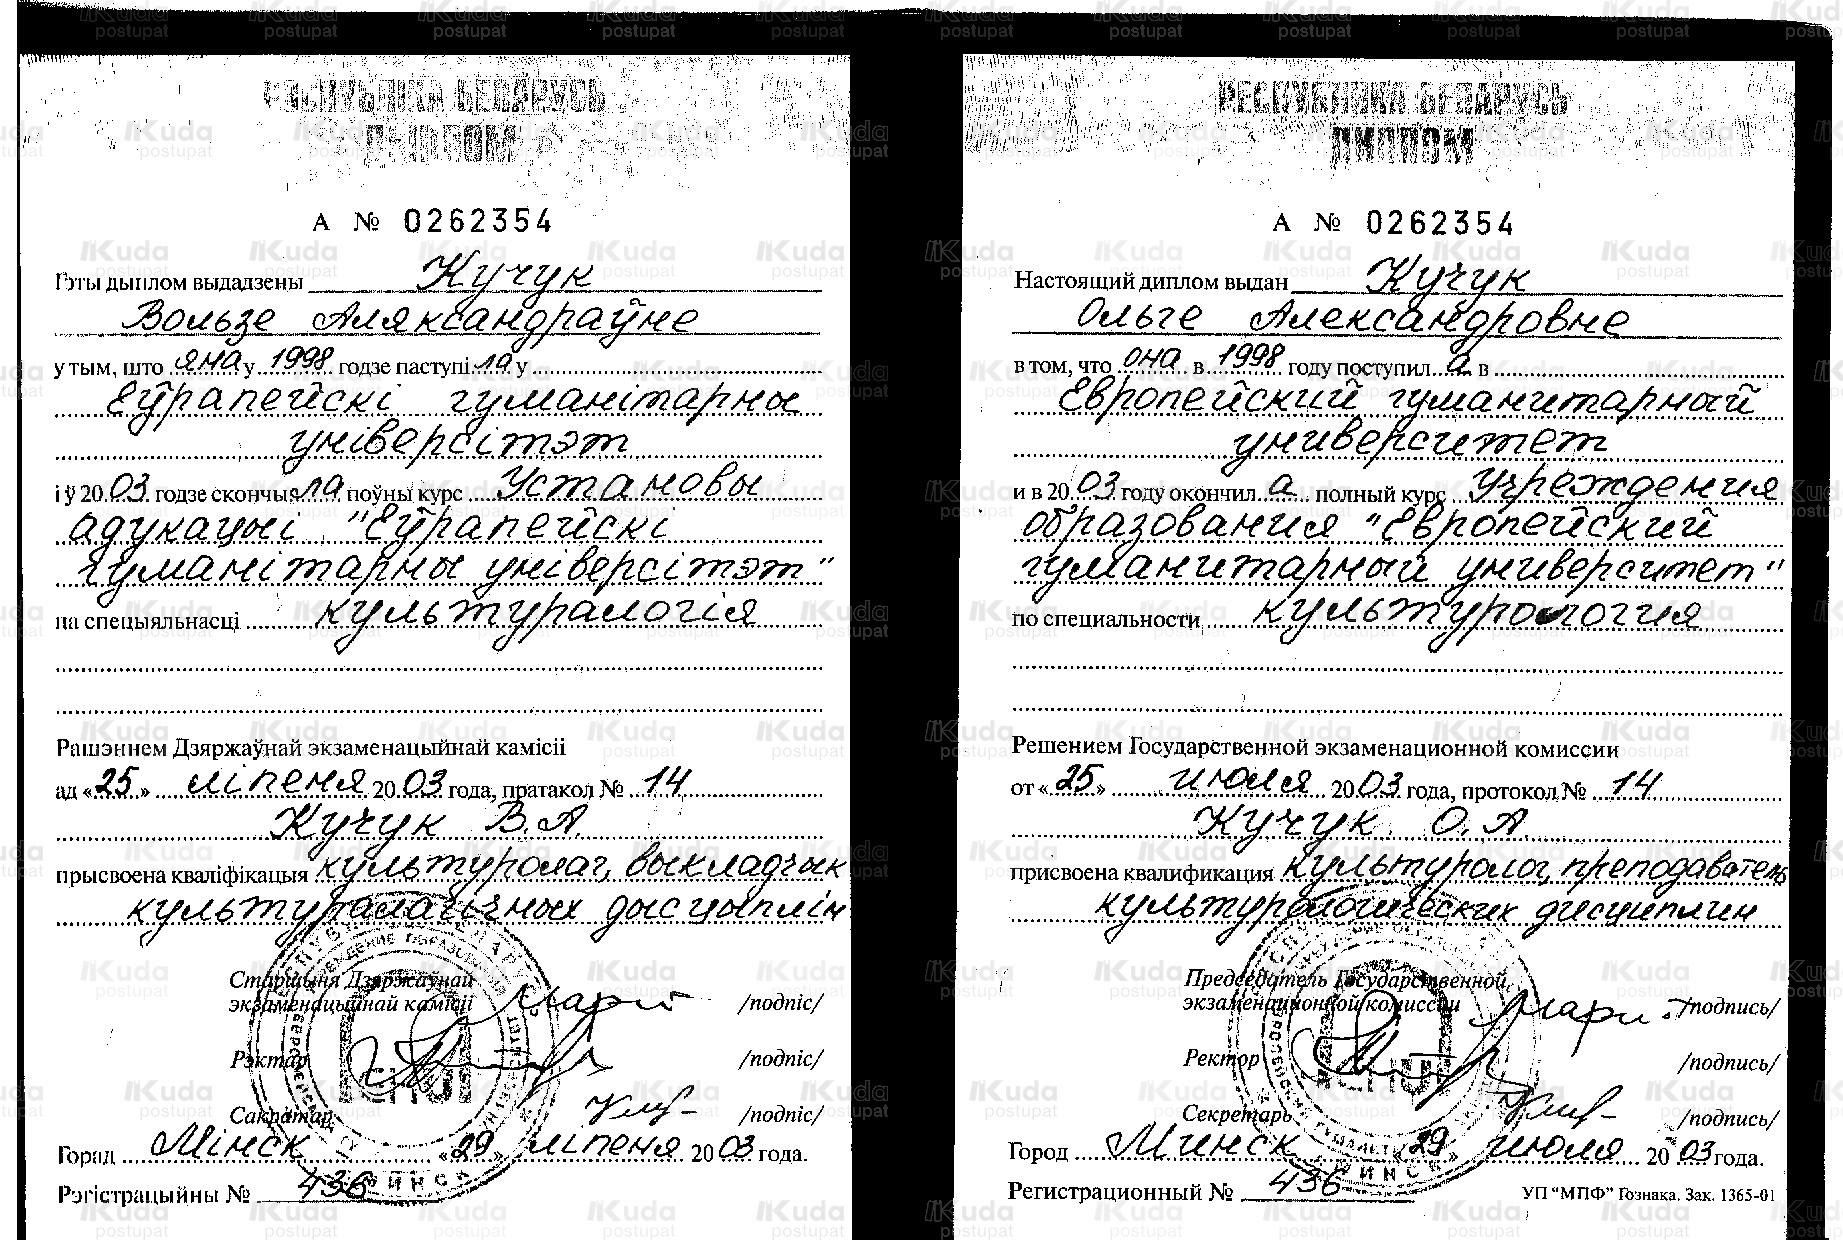 РЭСПУБЛІКА БЕЛАРУСЬ
ДЫПЛОМ
А № 0262354
Гэты дыплом выдадзены Кучук
Вользе Аляксандраўне
у тым, што яна у 1998 годзе паступіла у
Еўрапейскі гуманітарны
універсітэт
і ў 2003 годзе скончыла поўны курс Установы
адукацыі "Еўрапейскі
гуманітарны універсітэт"
па спецыяльнасці культуралогія
Рашэннем Дзяржаўнай экзаменацыйнай камісіі
ад «25» ліпеня 2003 года, пратакол № 14
Кучук В.А.
прысвоена кваліфікацыя культуролаг, выкладчык
культуралагічных дысцыплін
Старшыня Дзяржаўнай
экзаменацыйнай камісіі /подпіс/
Рэктар /подпіс/
Сакратар /подпіс/
Горад Мінск «29» ліпеня 2003 года.
Рэгістрацыйны № 436
РЕСПУБЛИКА БЕЛАРУСЬ
ДИПЛОМ
А № 0262354
Настоящий диплом выдан Кучук
Ольге Александровне
в том, что она в 1998 году поступила в
Европейский гуманитарный
университет
и в 2003 году окончила полный курс Учреждения
образования "Европейский
гуманитарный университет"
по специальности культурология
Решением Государственной экзаменационной комиссии
от «25» июля 2003 года, протокол № 14
Кучук О.А.
присвоена квалификация культуролог, преподаватель
культурологических дисциплин
Председатель Государственной
экзаменационной комиссии /подпись/
Ректор /подпись/
Секретарь /подпись/
Город Минск «29» июля 2003 года.
Регистрационный № 436
УП “МПФ” Гознака. Зак. 1365-01
Kuda
postupat